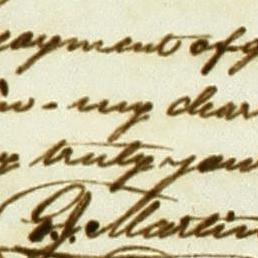 payment of g
in - my dear
y truly your
G. J. Martin